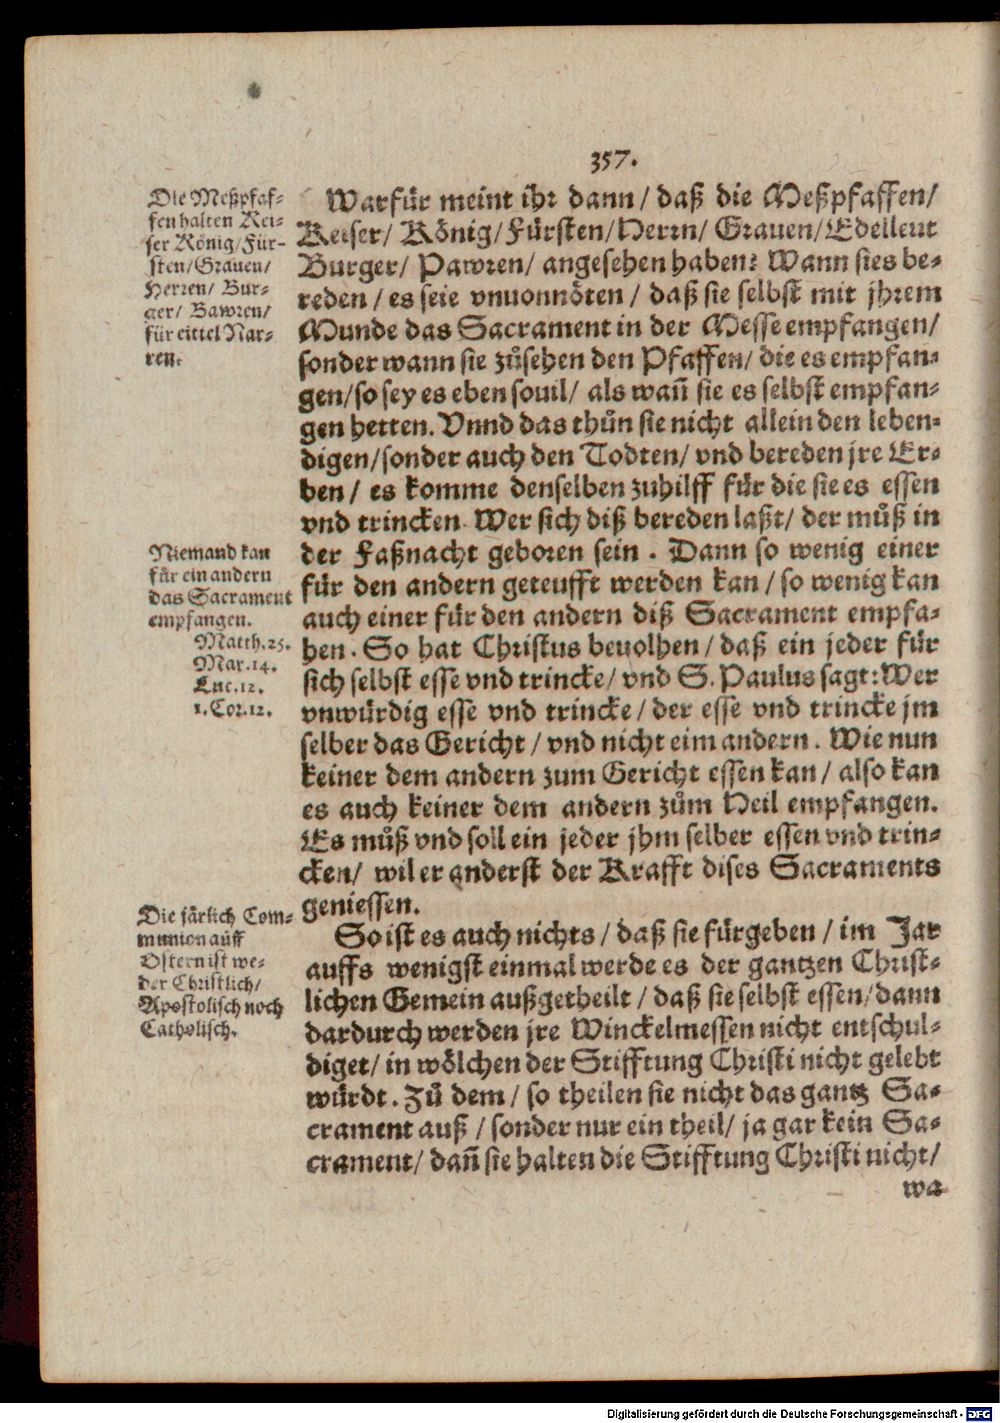 357.
Die Meßpfaf-
fen halten Kei-
ser König/Für-
sten/Grauen/
Herren/ Bur-
ger/ Bawren/
für eittel Nar-
ren.
Warfür meint ihr dann/ daß die Meßpfaffen/
Keiser/ König/Fürsten/Herrn/ Grauen/Edelleut
Burger/ Pawren/ angesehen haben? Wann sies be-
reden/ es seie vnuonnöten/ daß sie selbst mit jhrem
Munde das Sacrament in der Messe empfangen/
sonder wann sie zůsehen den Pfaffen/ die es empfan-
gen/so sey es eben souil/ als wañ sie es selbst empfan-
gen hetten. Vnnd das thůn sie nicht allein den leben-
digen/sonder auch den Todten/ vnd bereden jre Er-
ben/ es komme denselben zuhilff für die sie es essen
vnd trincken. Wer sich diß bereden laßt/ der můß in
der Faßnacht geboren sein. Dann so wenig einer
für den andern geteufft werden kan/ so wenig kan
auch einer für den andern diß Sacrament empfa-
hen. So hat Christus beuolhen/ daß ein jeder für
sich selbst esse vnd trincke/ vnd S. Paulus sagt: Wer
vnwürdig esse vnd trincke/ der esse vnd trincke jm
selber das Gericht/ vnd nicht eim andern. Wie nun
keiner dem andern zum Gericht essen kan/ also kan
es auch keiner dem andern zům Heil empfangen.
Es můß vnd soll ein jeder jhm selber essen vnd trin-
cken/ wil er anderst der Krafft dises Sacraments
geniessen.
Niemand kan
für ein andern
das Sacrament
empfangen.
Matth.25.
Mar.14.
Luc.12.
1.Cor.12.
Die järlich Com-
munion auff
Ostern ist we-
der Christlich/
Apostolisch noch
Catholisch.
So ist es auch nichts/ daß sie fürgeben/ im Jar
auffs wenigst einmal werde es der gantzen Christ-
lichen Gemein außgetheilt/ daß sie selbst essen/dann
dardurch werden jre Winckelmessen nicht entschul-
diget/ in wölchen der Stifftung Christi nicht gelebt
würdt. Zů dem/ so theilen sie nicht das gantz Sa-
crament auß/ sonder nur ein theil/ ja gar kein Sa-
crament/ dañ sie halten die Stifftung Christi nicht/
wa
Digitalisierung gefördert durch die Deutsche Forschungsgemeinschaft - DFG